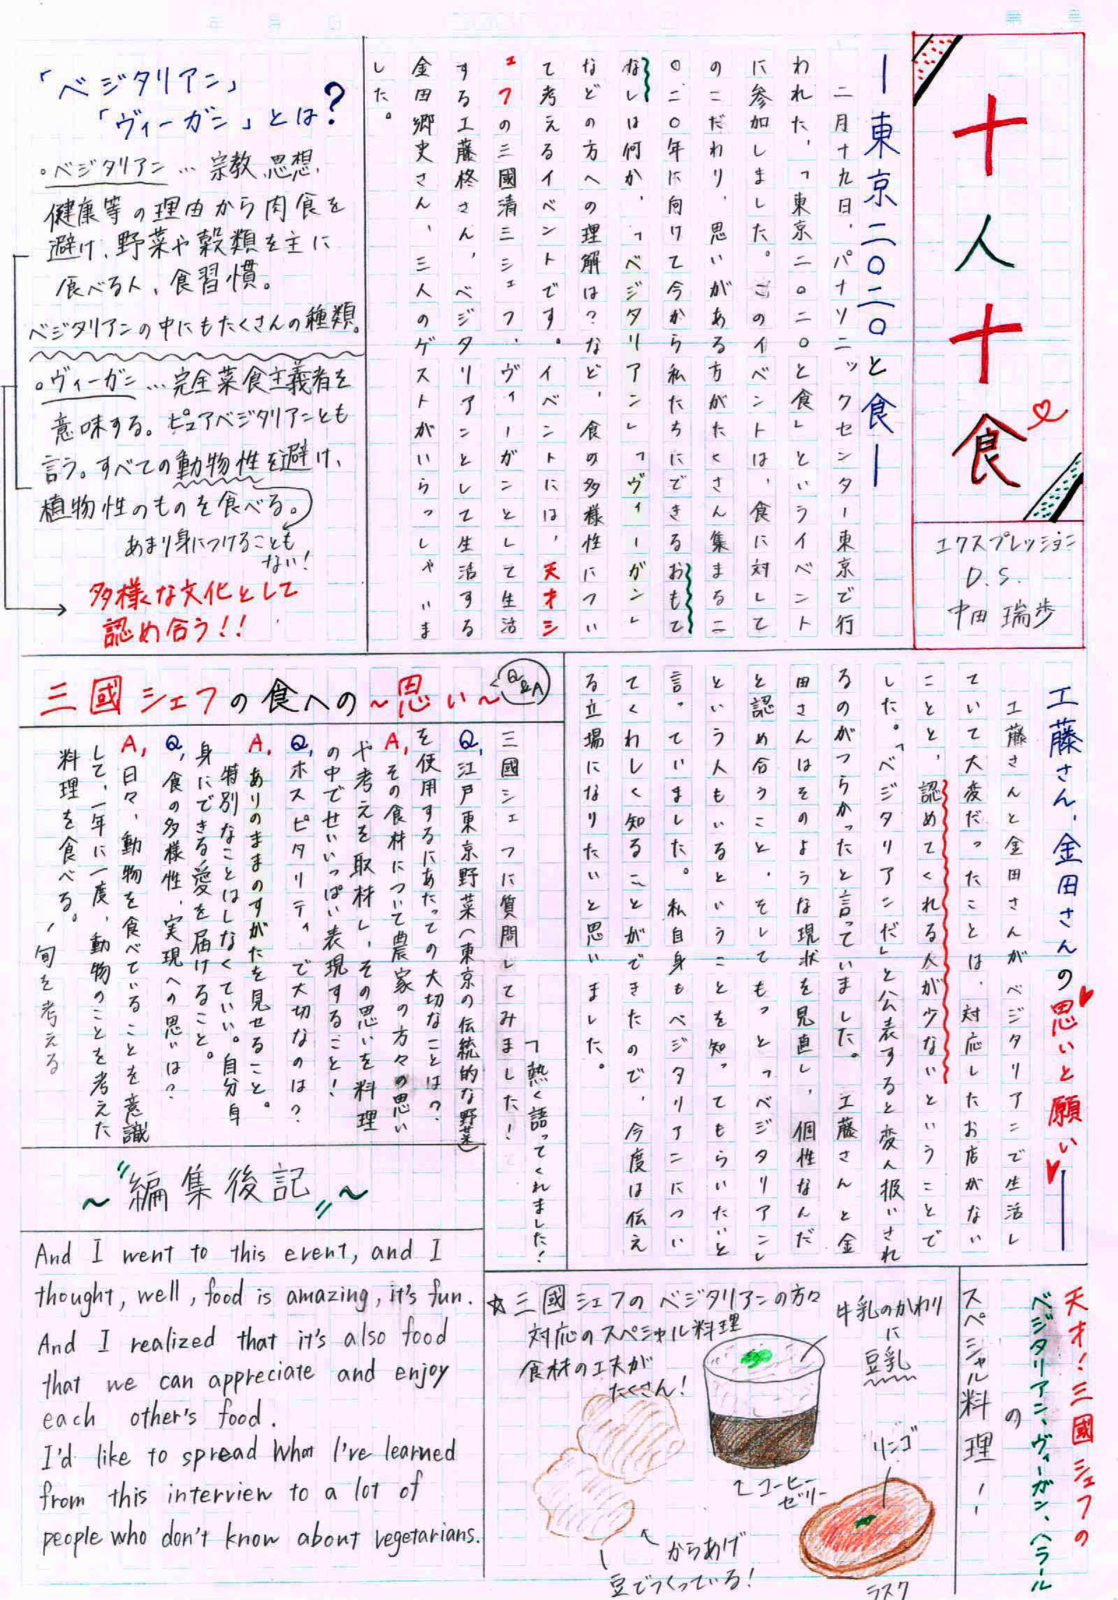 十人十食
エクスプレッション
D.S.
中田 瑞歩
―東京二〇二〇と食―
二月十九日、パナソニックセンター東京で行
われた、「東京二〇二〇と食」というイベント
に参加しました。このイベントは、食に対して
のこだわり、思いがある方がたくさん集まる二
〇二〇年に向けて今から私たちにできるおもて
なしは何か、「ベジタリアン」「ヴィーガン」
などの方への理解は?など、食の多様性につい
て考えるイベントです。イベントには、天才シ
ェフの三國清三シェフ、ヴィーガンとして生活
する工藤柊さん、ベジタリアンとして生活する
金田郷史さん、三人のゲストがいらっしゃいま
した。
「ベジタリアン」
「ヴィーガン」とは?
◦ベジタリアン…宗教、思想、
健康等の理由から肉食を
避け、野菜や穀類を主に
食べる人、食習慣。
ベジタリアンの中にもたくさんの種類。
◦ヴィーガン…完全菜食主義者を
意味する。ピュアベジタリアンとも
言う。すべての動物性を避け、
植物性のものを食べる。
あまり身につけることも
ない!
多様な文化として
認め合う!!
工藤さん、金田さんの思いと願い―
工藤さんと金田さんがベジタリアンで生活し
ていて大変だったことは、対応したお店がない
ことと、認めてくれる人が少ないということで
した。「ベジタリアンだ」と公表すると変人扱いされ
るのがつらかったと言っていました。工藤さんと金
田さんはそのような現状を見直し、個性なんだ
と認め合うこと、そしてもっと「ベジタリアン」
という人もいるということを知ってもらいたいと
言っていました。私自身もベジタリアンについ
てくわしく知ることができたので、今度は伝え
る立場になりたいと思いました。
三國シェフの食への~思い~
Q&A
三國シェフに質問してみました!
熱く語ってくれました!
Q、江戸東京野菜(東京の伝統的な野菜)
を使用するにあたっての大切なことは?
A、その食材について農家の方々の思い
や考えを取材し、その思いを料理
の中でせいいっぱい表現すること!
Q、ホスピタリティで大切なのは?
A、ありのままのすがたを見せること。
特別なことはしなくていい。自分自
身にできる愛を届けること。
Q、食の多様性、実現への思いは?
A、日々、動物を食べていることを意識
して、一年に一度、動物のことを考えた
料理を食べる。
旬を考える
~"編集後記"~
And I went to this event, and I
thought, well, food is amazing, it's fun.
And I realized that it's also food
that we can appreciate and enjoy
each other's food.
I'd like to spread what I've learned
from this interview to a lot of
people who don't know about vegetarians.
天才!三國シェフの
ベジタリアン、ヴィーガン、ヘラール
の
スペシャル料理!!
☆三國シェフのベジタリアンの方々
対応のスペシャル料理
食材の工夫が
たくさん!
牛乳のかわり
に
豆乳
コーヒー
ゼリー
リンゴ
ラスク
からあげ
豆でつくっている!